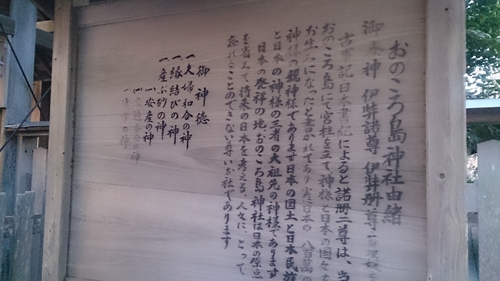 おのころ島神社由緒
御祭神 伊弉諾尊 伊弉册尊
古事記日本書紀によると諾册二尊は、
おのころ島にて宮柱を立て、神様と日本の国々を
お生みになったと書かれてあり 日本の 八百萬の
神様の親神様であります日本の国土と日本民族
と日本の神様の三者の大祖先の神様であります
日本の発祥の地おのころ島神社は日本の原点
を省みて、将来の日本を考える、人々に、とって
忘れることのできない尊いお社であります
御神徳
一、夫婦和合の神
一、縁結びの神
一、産ぶ砂の神
一、安産の神